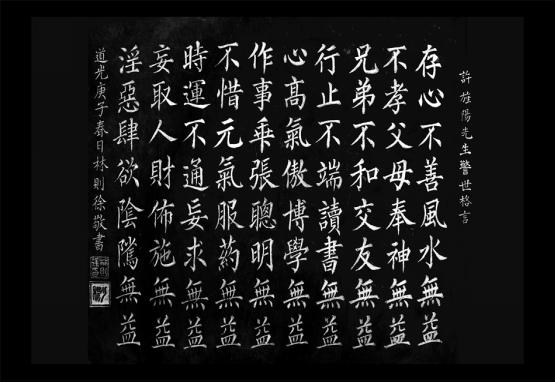 許旌陽先生警世格言
存心不善風水無益
不孝父母奉神無益
兄弟不和交友無益
行止不端讀書無益
心髙氣傲博學無益
作事乖張聰明無益
不惜元氣服葯無益
時運不通妄求無益
妄取人財佈施無益
淫惡肆欲陰隲無益
道光庚子春日林則徐敬書